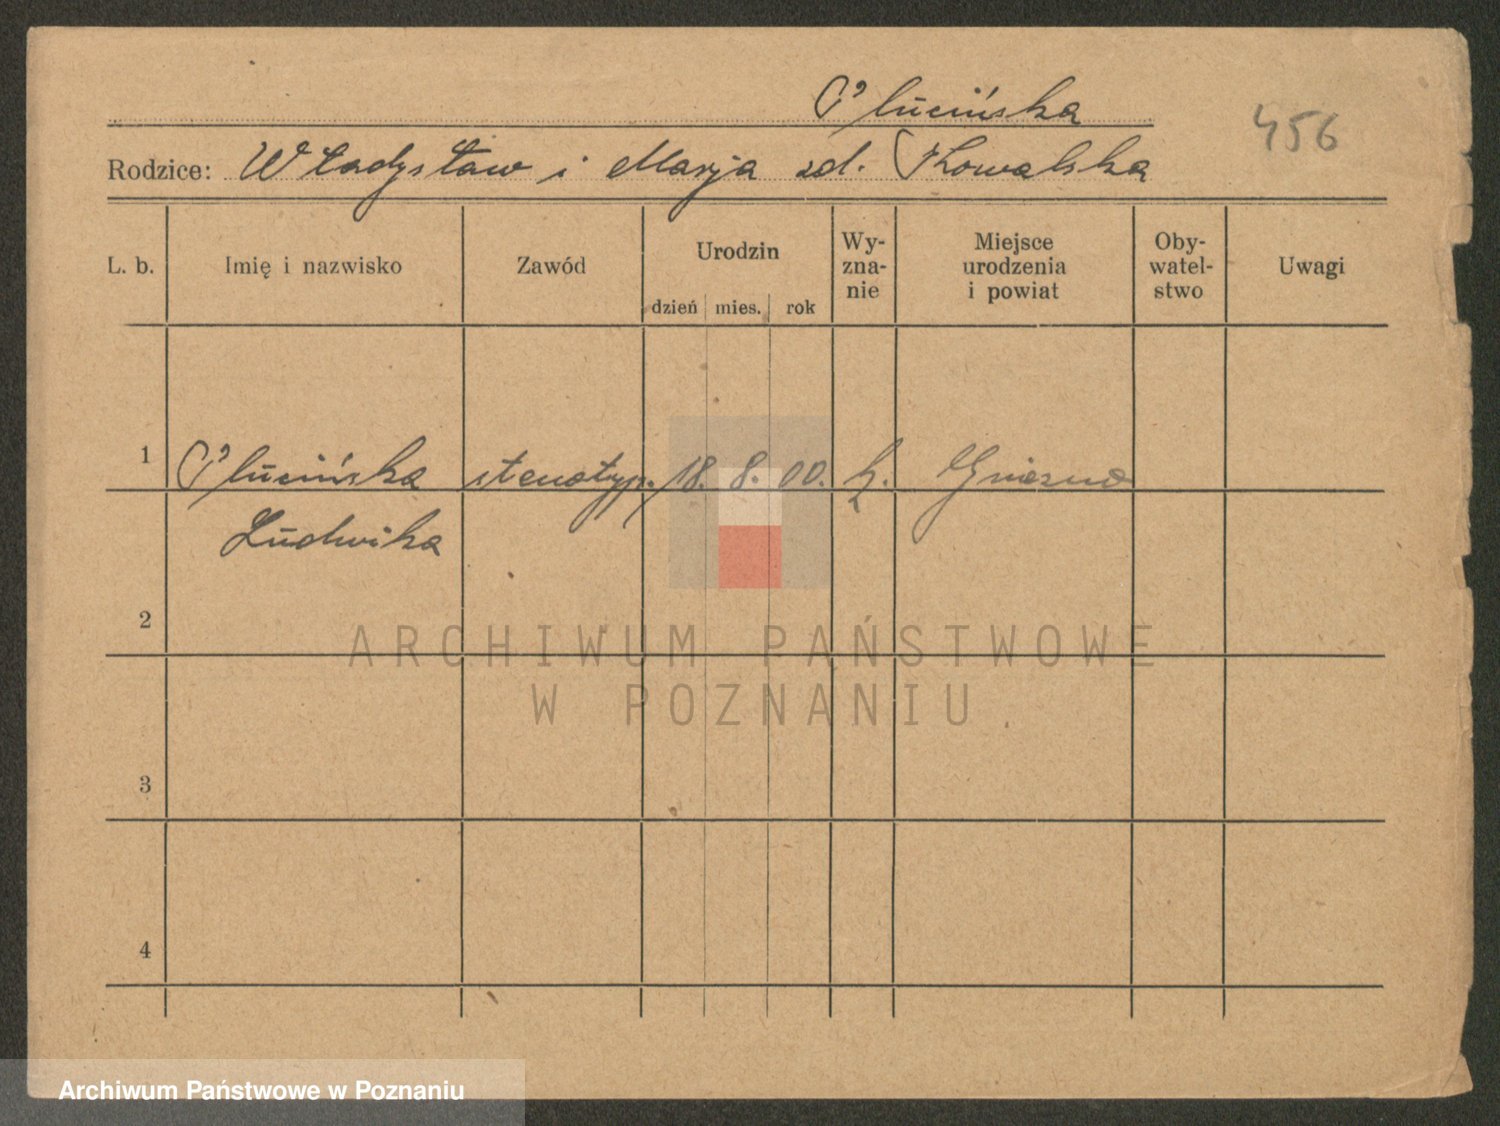 Plucińska
456
Rodzice: Władysław i Marja zd. Kowalska
L. b. Imię i nazwisko Zawód Urodzin dzień mies. rok Wy-zna-nie Miejsce urodzenia i powiat Oby-watel-stwo Uwagi
1 Plucińska stenotyp. 18. 8. 00. k. Gniezno
Ludwika
2
ARCHIWUM PAŃSTWOWE
W POZNANIU
3
4
Archiwum Państwowe w Poznaniu